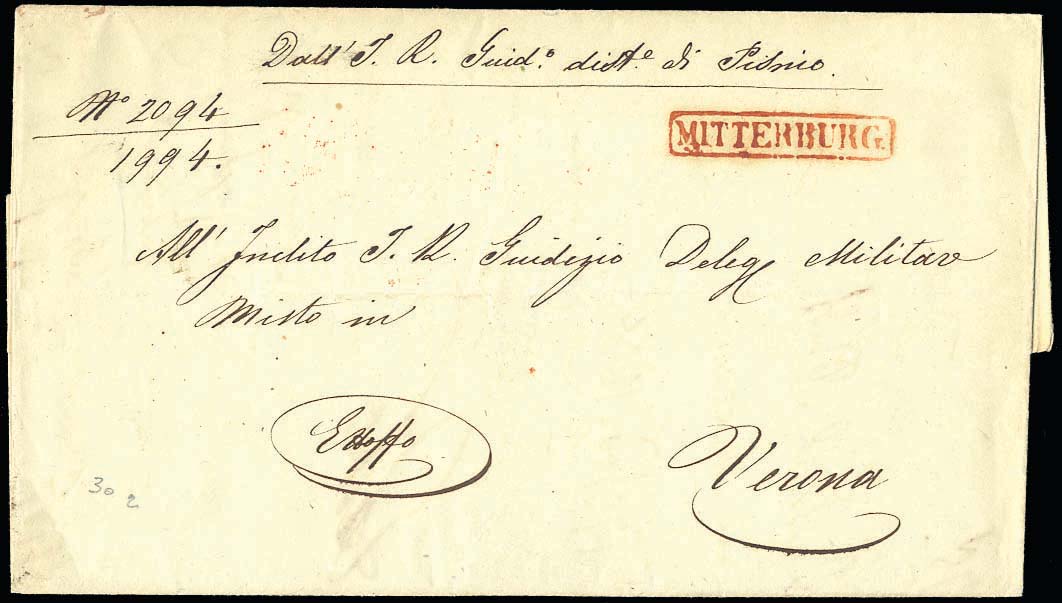 Dall' I. R. Giud.º dist.e di Pisino.
Nº 2094
1994.
MITTERBURG.
All' Inclito I. R. Giudizio Deleg Militare
Misto in
Exoffo
Verona
30 2